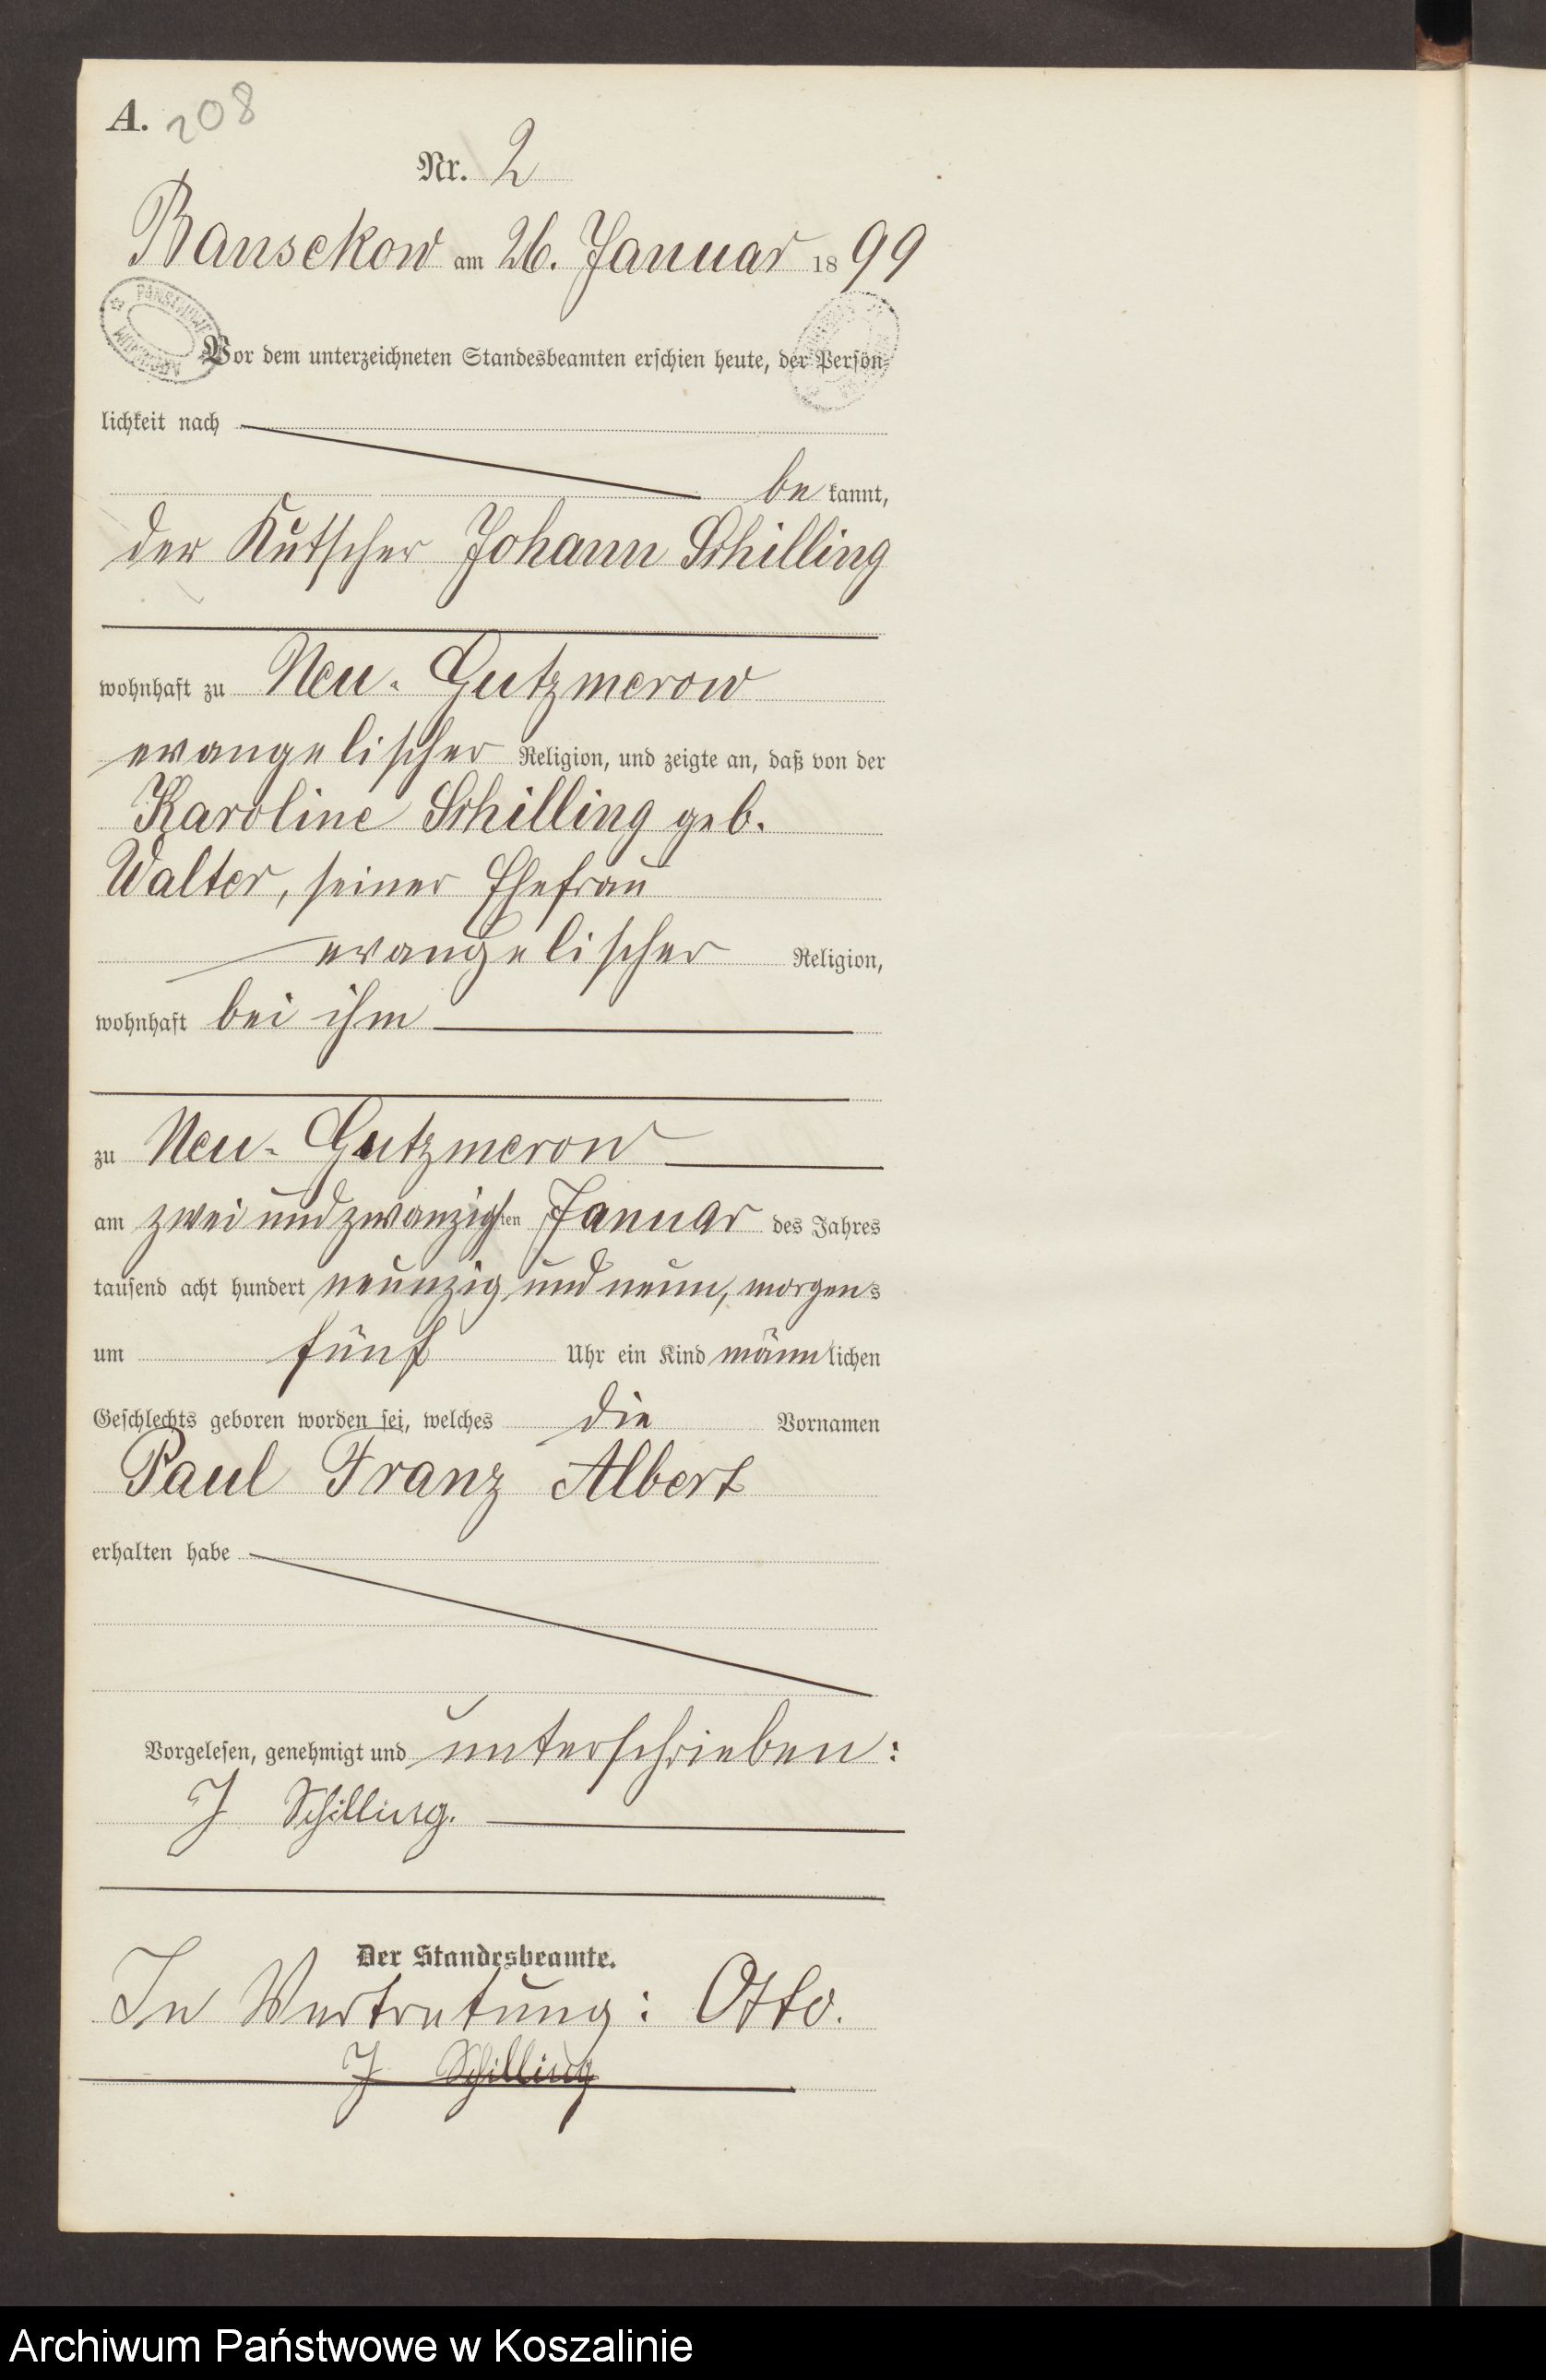 A. 208
Nr. 2
Bansekow am 26. Januar 1899
Vor dem unterzeichneten Standesbeamten erschien heute, der Persön-
lichkeit nach
be kannt,
der Kutscher Johann Schilling
wohnhaft zu Neu-Gutzmerow
evangelischer Religion, und zeigte an, daß von der
Karoline Schilling geb.
Walter, seiner Ehefrau
evangelischer Religion,
wohnhaft bei ihm
zu Neu-Gutzmerow
am zwei und zwanzigsten Januar des Jahres
tausend acht hundert neunzig und neun, morgens
um fünf Uhr ein Kind männlichen
Geschlechts geboren worden sei, welches die Vornamen
Paul Franz Albert
erhalten habe
Vorgelesen, genehmigt und unterschrieben:
J Schilling.
Der Standesbeamte.
In Vertretung: Otto.
J Schilling
Archiwum Państwowe w Koszalinie